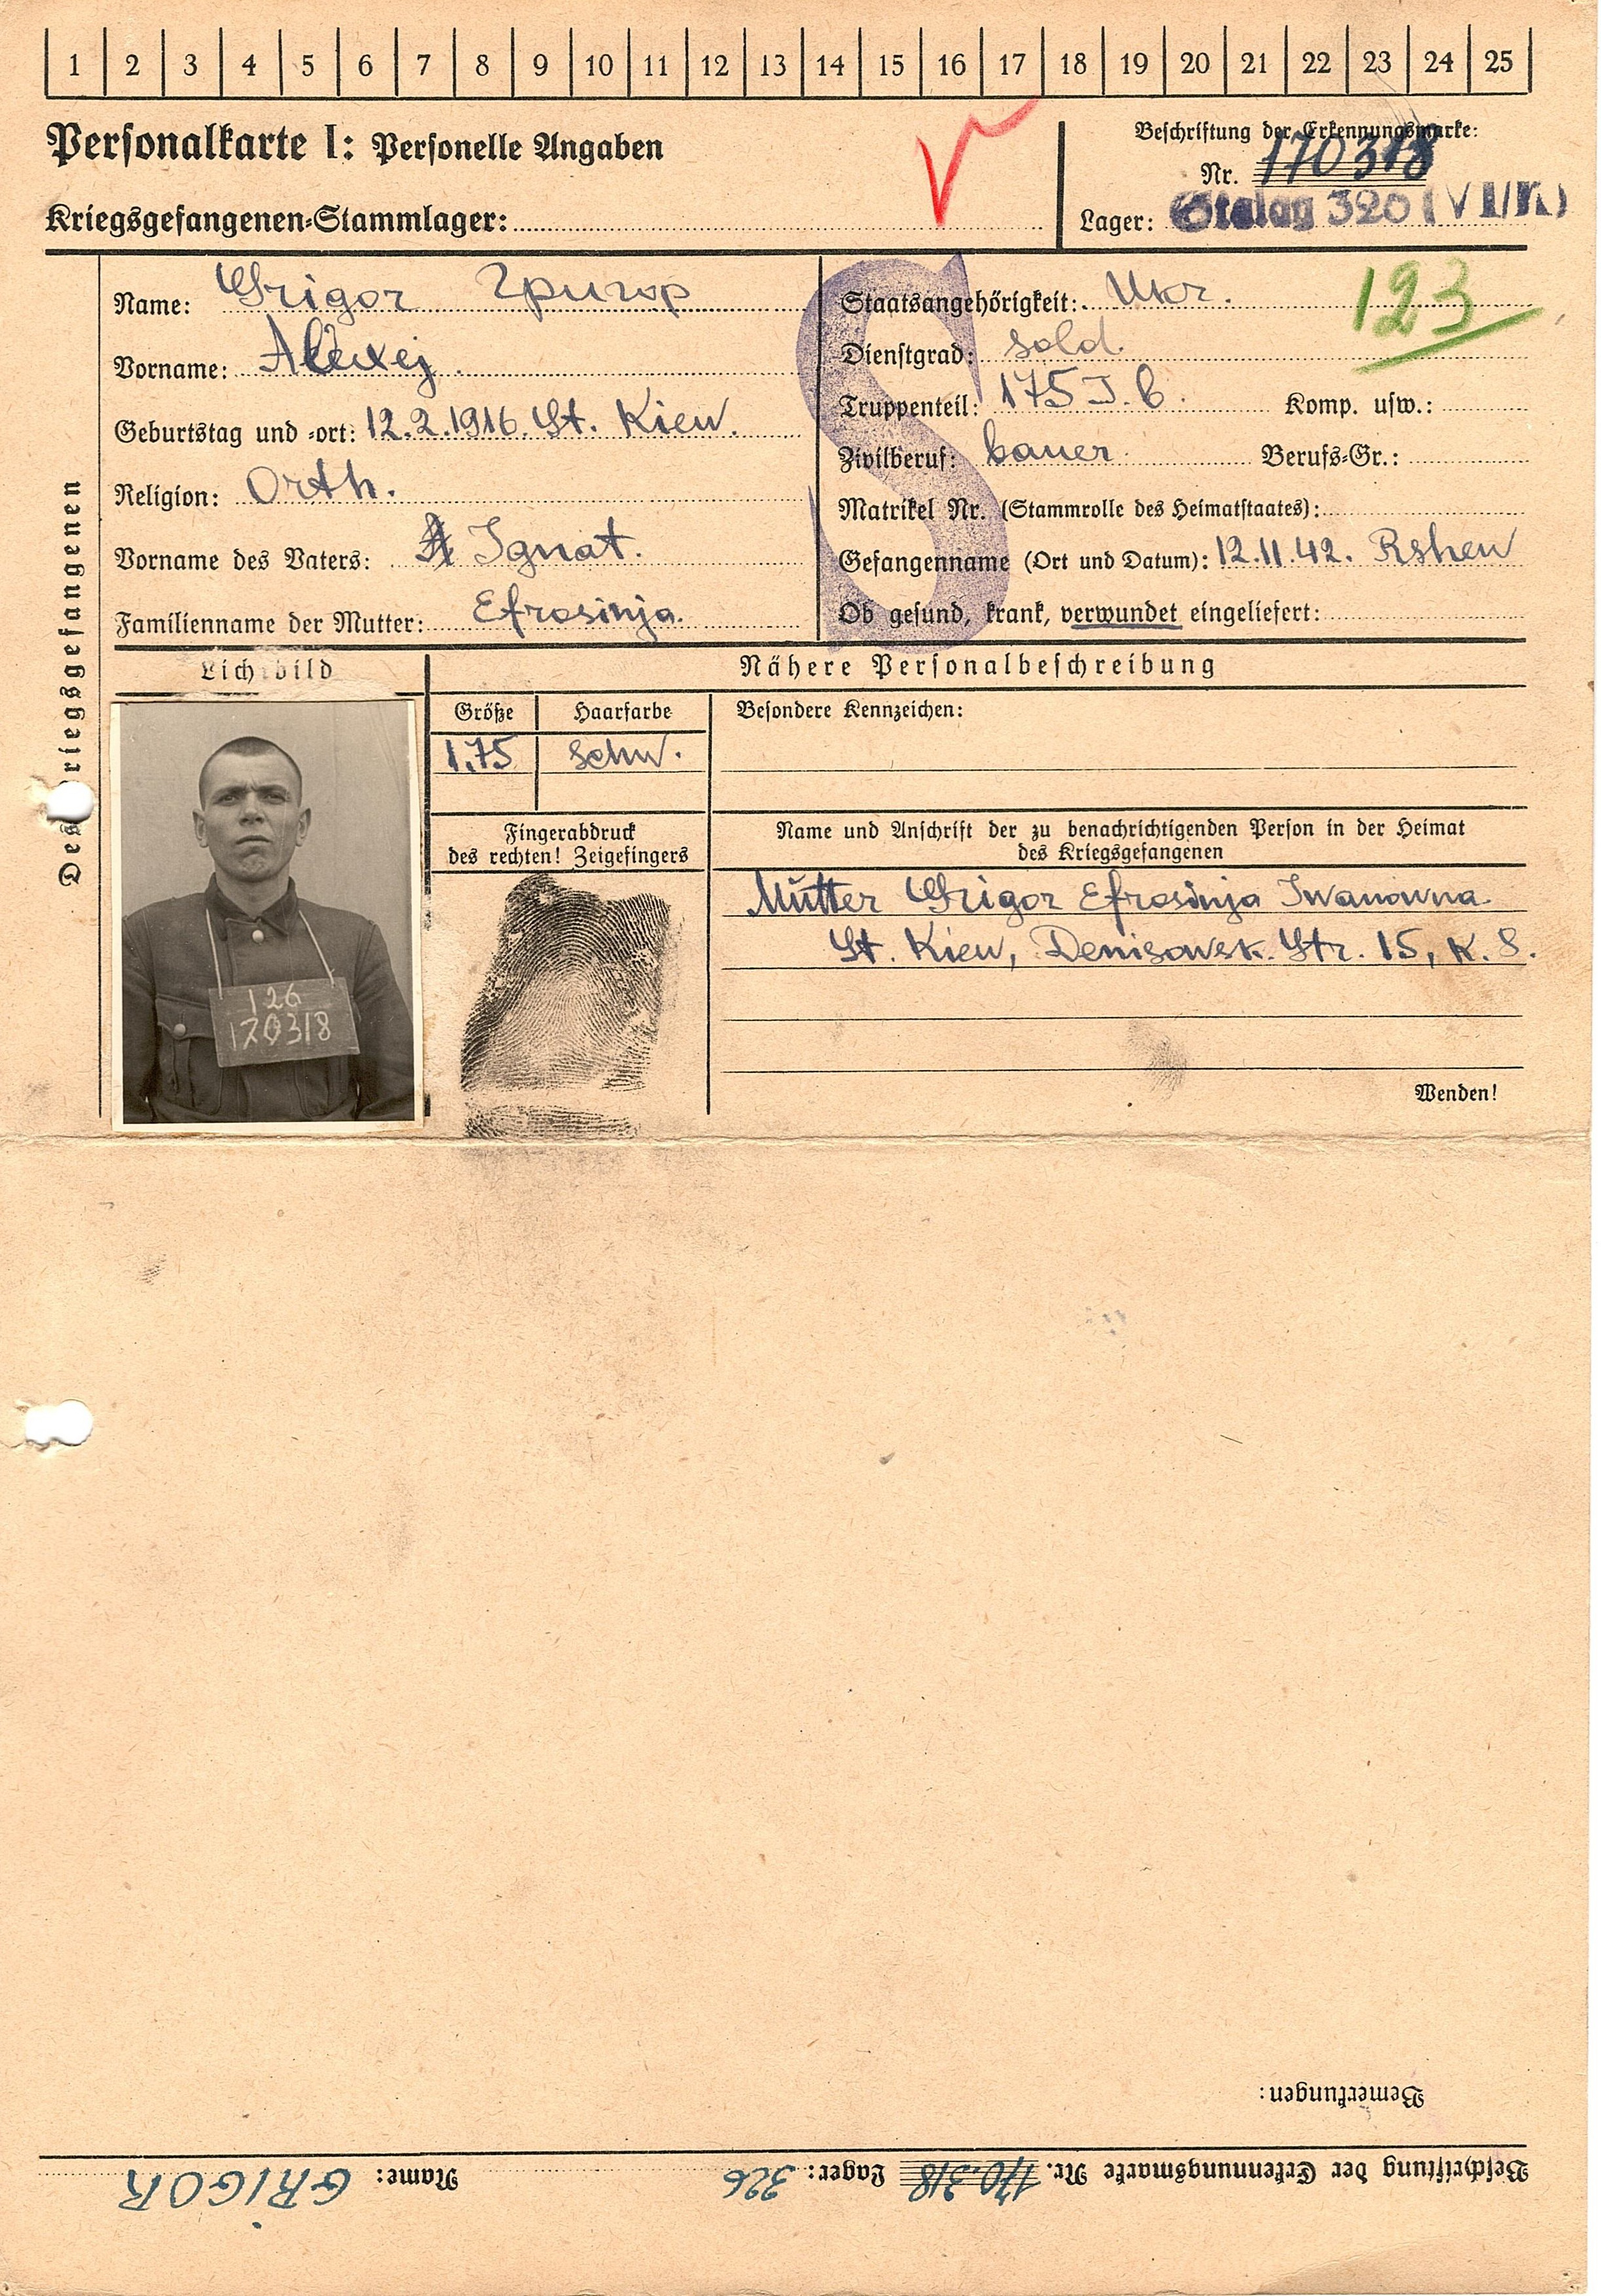 1 2 3 4 5 6 7 8 9 10 11 12 13 14 15 16 17 18 19 20 21 22 23 24 25
Personalkarte I: Personelle Angaben
Kriegsgefangenen-Stammlager:
Beschriftung der Erkennungsmarke:
Nr. 170318
Lager: Stalag 326 (VI/K)
Des Kriegsgefangenen
Name: Grigor Григор
Vorname: Alexej.
Geburtstag und -ort: 12.2.1916. St. Kiew.
Religion: Orth.
Vorname des Vaters: Ignat.
Familienname der Mutter: Efrosinja.
S
Staatsangehörigkeit: Ukr.
123
Dienstgrad: Sold.
Truppenteil: 175 I. b. Komp. usw.:
Zivilberuf: bauer Berufs-Gr.:
Matrikel Nr. (Stammrolle des Heimatstaates):
Gefangenname (Ort und Datum): 12.11.42. Rshew
Ob gesund, krank, verwundet eingeliefert:
Lichtbild
126
170318
Nähere Personalbeschreibung
Größe Haarfarbe
1,75 schw.
Besondere Kennzeichen:
Fingerabdruck
des rechten! Zeigefingers
Name und Anschrift der zu benachrichtigenden Person in der Heimat
des Kriegsgefangenen
Mutter Grigor Efrosinja Iwanowna.
St. Kiew, Denisowsk. Str. 15, K. 8.
Wenden!
Bemerkungen:
Beschriftung der Erkennungsmarke Nr. 170.318 Lager: 326 Name: GRIGOR